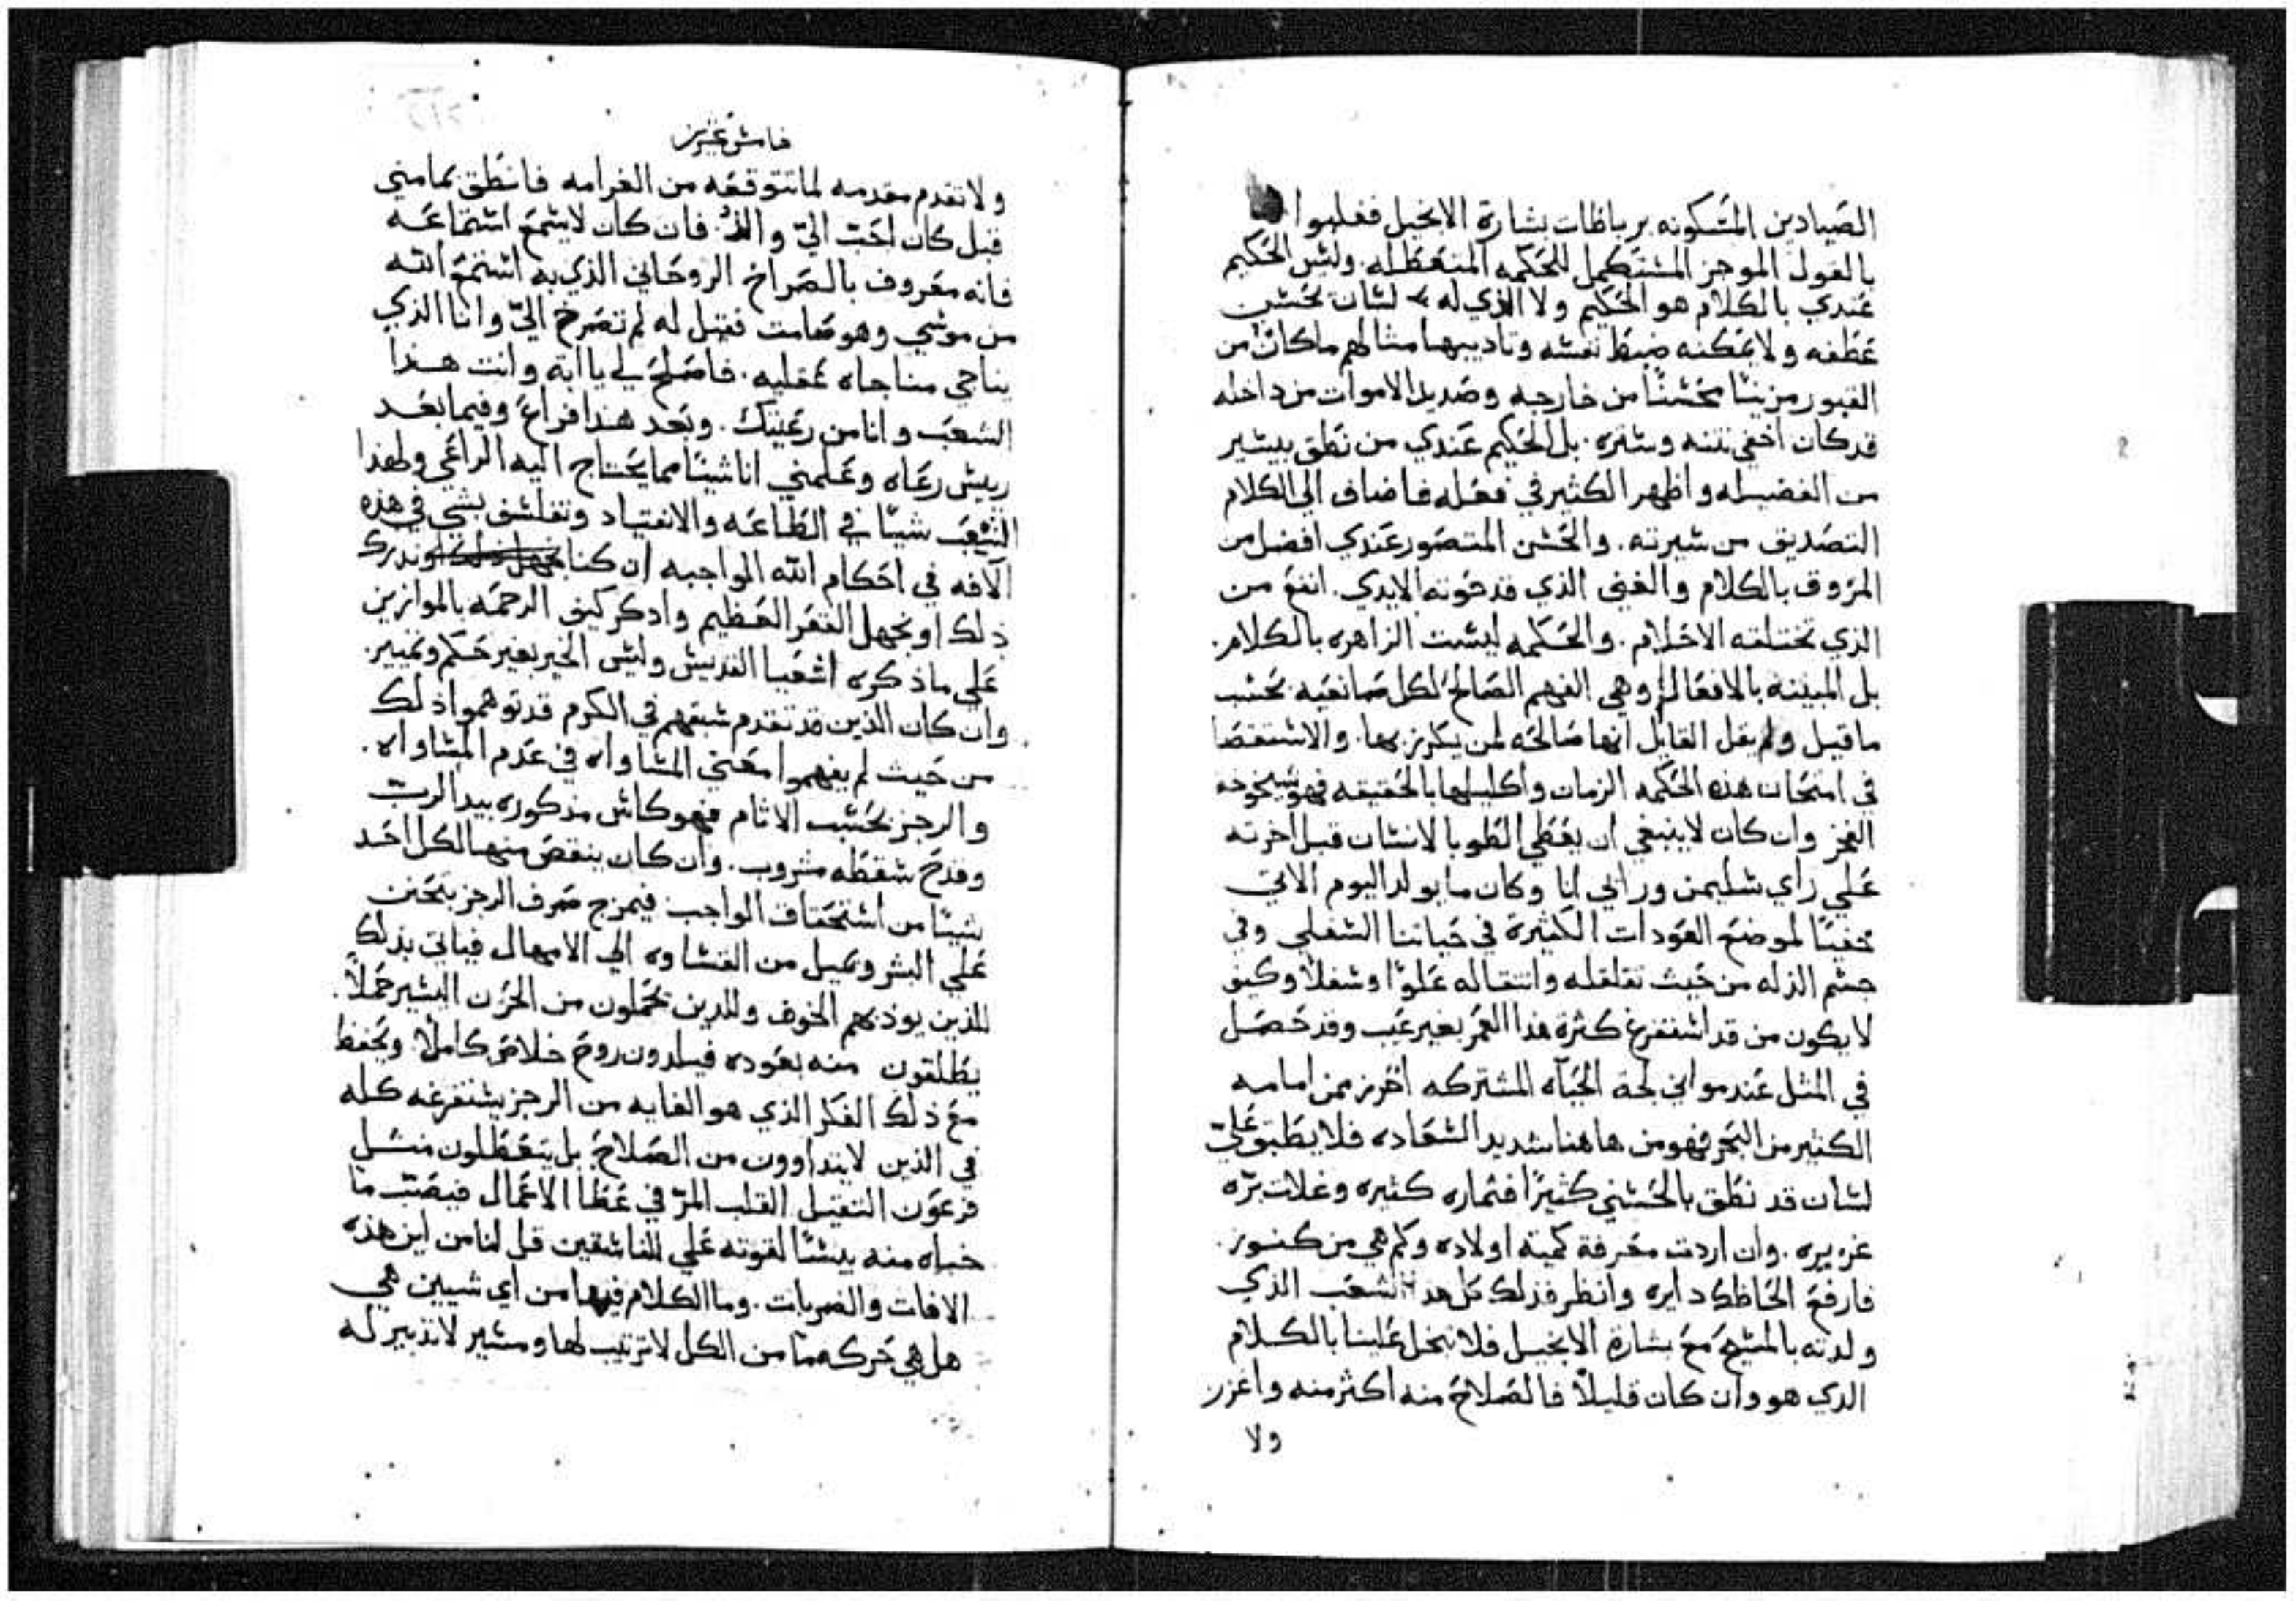 الصيادين المسكونه برباظات بشارة الانجيل فغلبوا
بالقول الموجز المستكمل للحكمه المتعظله. وليس الحكيم
عندي بالكلام هو الحكيم ولا الذي له لسان يحسن
عطفه ولا يمكنه ضبط نفسه وتاديبها مثالهم ما كان من
القبور مزينًا محسنًا من خارجه وصديد الاموات من داخله
قد كان اخفي نتنه وستره. بل الحكيم عندي من نطق بيسير
من الفضيله واظهر الكثير في فعله فاضاف الي الكلام
التصديق من سيرته. والحسن المتصور عندي افضل من
المزوق بالكلام والغني الذي قد حوته الايدي. انفع من
الذي تختلقه الاحلام. والحكمه ليست الزاهره بالكلام.
بل المبينه بالافعال وهي الفهم الصالح لكل صانعيه بحسب
ما قيل ولم يقل القايل انها صالحه لمن يكرز بها. والاستقصا
في امتحان هذه الحكمه الزمان واكليلها بالحقيقه فهو شيخوخه
الفخر وان كان لا ينبغي ان يغطي الطوبا لانسان قبل اخرته
علي راي سليمن ورايي انا وكان ما يولد اليوم الاتي
خفيًا لموضع العودات الكثيرة في حياتنا السفلي وفي
جسم الذله من حيث تقلقله وانتقاله علوًا وسفلًا وكيف
لا يكون من قد استفرغ كثرة هذا العمر بغير عيب وقد حصل
في المثل عند مواني لجة الحياه المشتركه احرز ممن امامه
الكثير من البحر فهو من هاهنا شديد السعاده فلا يطبق علي
لسان قد نطق بالحسني كثيرًا فثماره كثيره وغلات بره
غزيره. وان اردت معرفة كمية اولاده وكم هي من كنوز.
فارفع الحاظك دايره وانظر فذلك كل هذا الشعب الذي
ولدته بالمسيح مع بشارة الانجيل فلا تبخل علينا بالكلام
الذي هو وان كان قليلًا فالصلاح منه اكثر منه واغزر
ولا
ولا تقدم مقدمه لما تتوقعه من الغرامه فانطق بما مني
قبل كان احب الي والذ. فان كان لا يسمع استماعه
فانه معروف بالصراخ الروحاني الذي به استمع الله
من موسي وهو صامت فقيل له لم تصرخ الي وانا الذي
يناجي مناجاه عقليه. فاصلح لي يا ابه وانت هذا
الشعب وانا من رعيتك. وبعد هذا فراع وفيما بعد
ريس رعاه وعلمني انا شيًا مما يحتاج اليه الراعي ولهذا
الشعب شيًا في الطاعه والانقياد وتفلسف بشي في هذه
الافه في احكام الله الواجبه ان كنا وندرك
ذلك او نجهل القعر العظيم واذكر كيف الرحمه بالموازين
علي ما ذكره اشعيا القديس وليس الخير بغير حكم وتمييز.
وان كان الذين قد تقدم سبقهم في الكرم قد توهموا ذلك
من حيث لم يفهموا معني المساواه في عدم المساواه.
والرجز بحسب الاثام فهو كاس مذكوره بيد الرب
وقدح سقطه مشروب. وان كان ينقص منها لكل احد
شيًا من استحقاق الواجب فيمزج صرف الرجز بتحنن
علي البشر ويميل من القساوه الي الامهال فياتي بذلك
للذين يوذيهم الخوف وللذين يحملون من الحزن اليسير حملًا.
يطلقون منه بعوده فيلدون روح خلاص كاملًا ويحفظ
مع ذلك الفكر الذي هو الغايه من الرجز يستفرغه كله
في الذين لا يتداوون من الصلاح بل يتعظلون مثل
فرعون الثقيل القلب المر في عطا الاعمال فيصب ما
خباه منه بيسًا لقوته علي المنافقين قل لنا من اين هذه
الافات والضربات. وما الكلام فيها من اي شيين هي
هل هي حركه ما من الكل لا ترتيب لها ومسير لا تدبير له